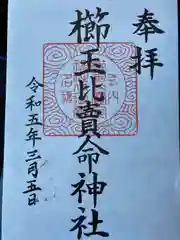 奉拝
櫛玉比賣命神社
令和五年三月五日